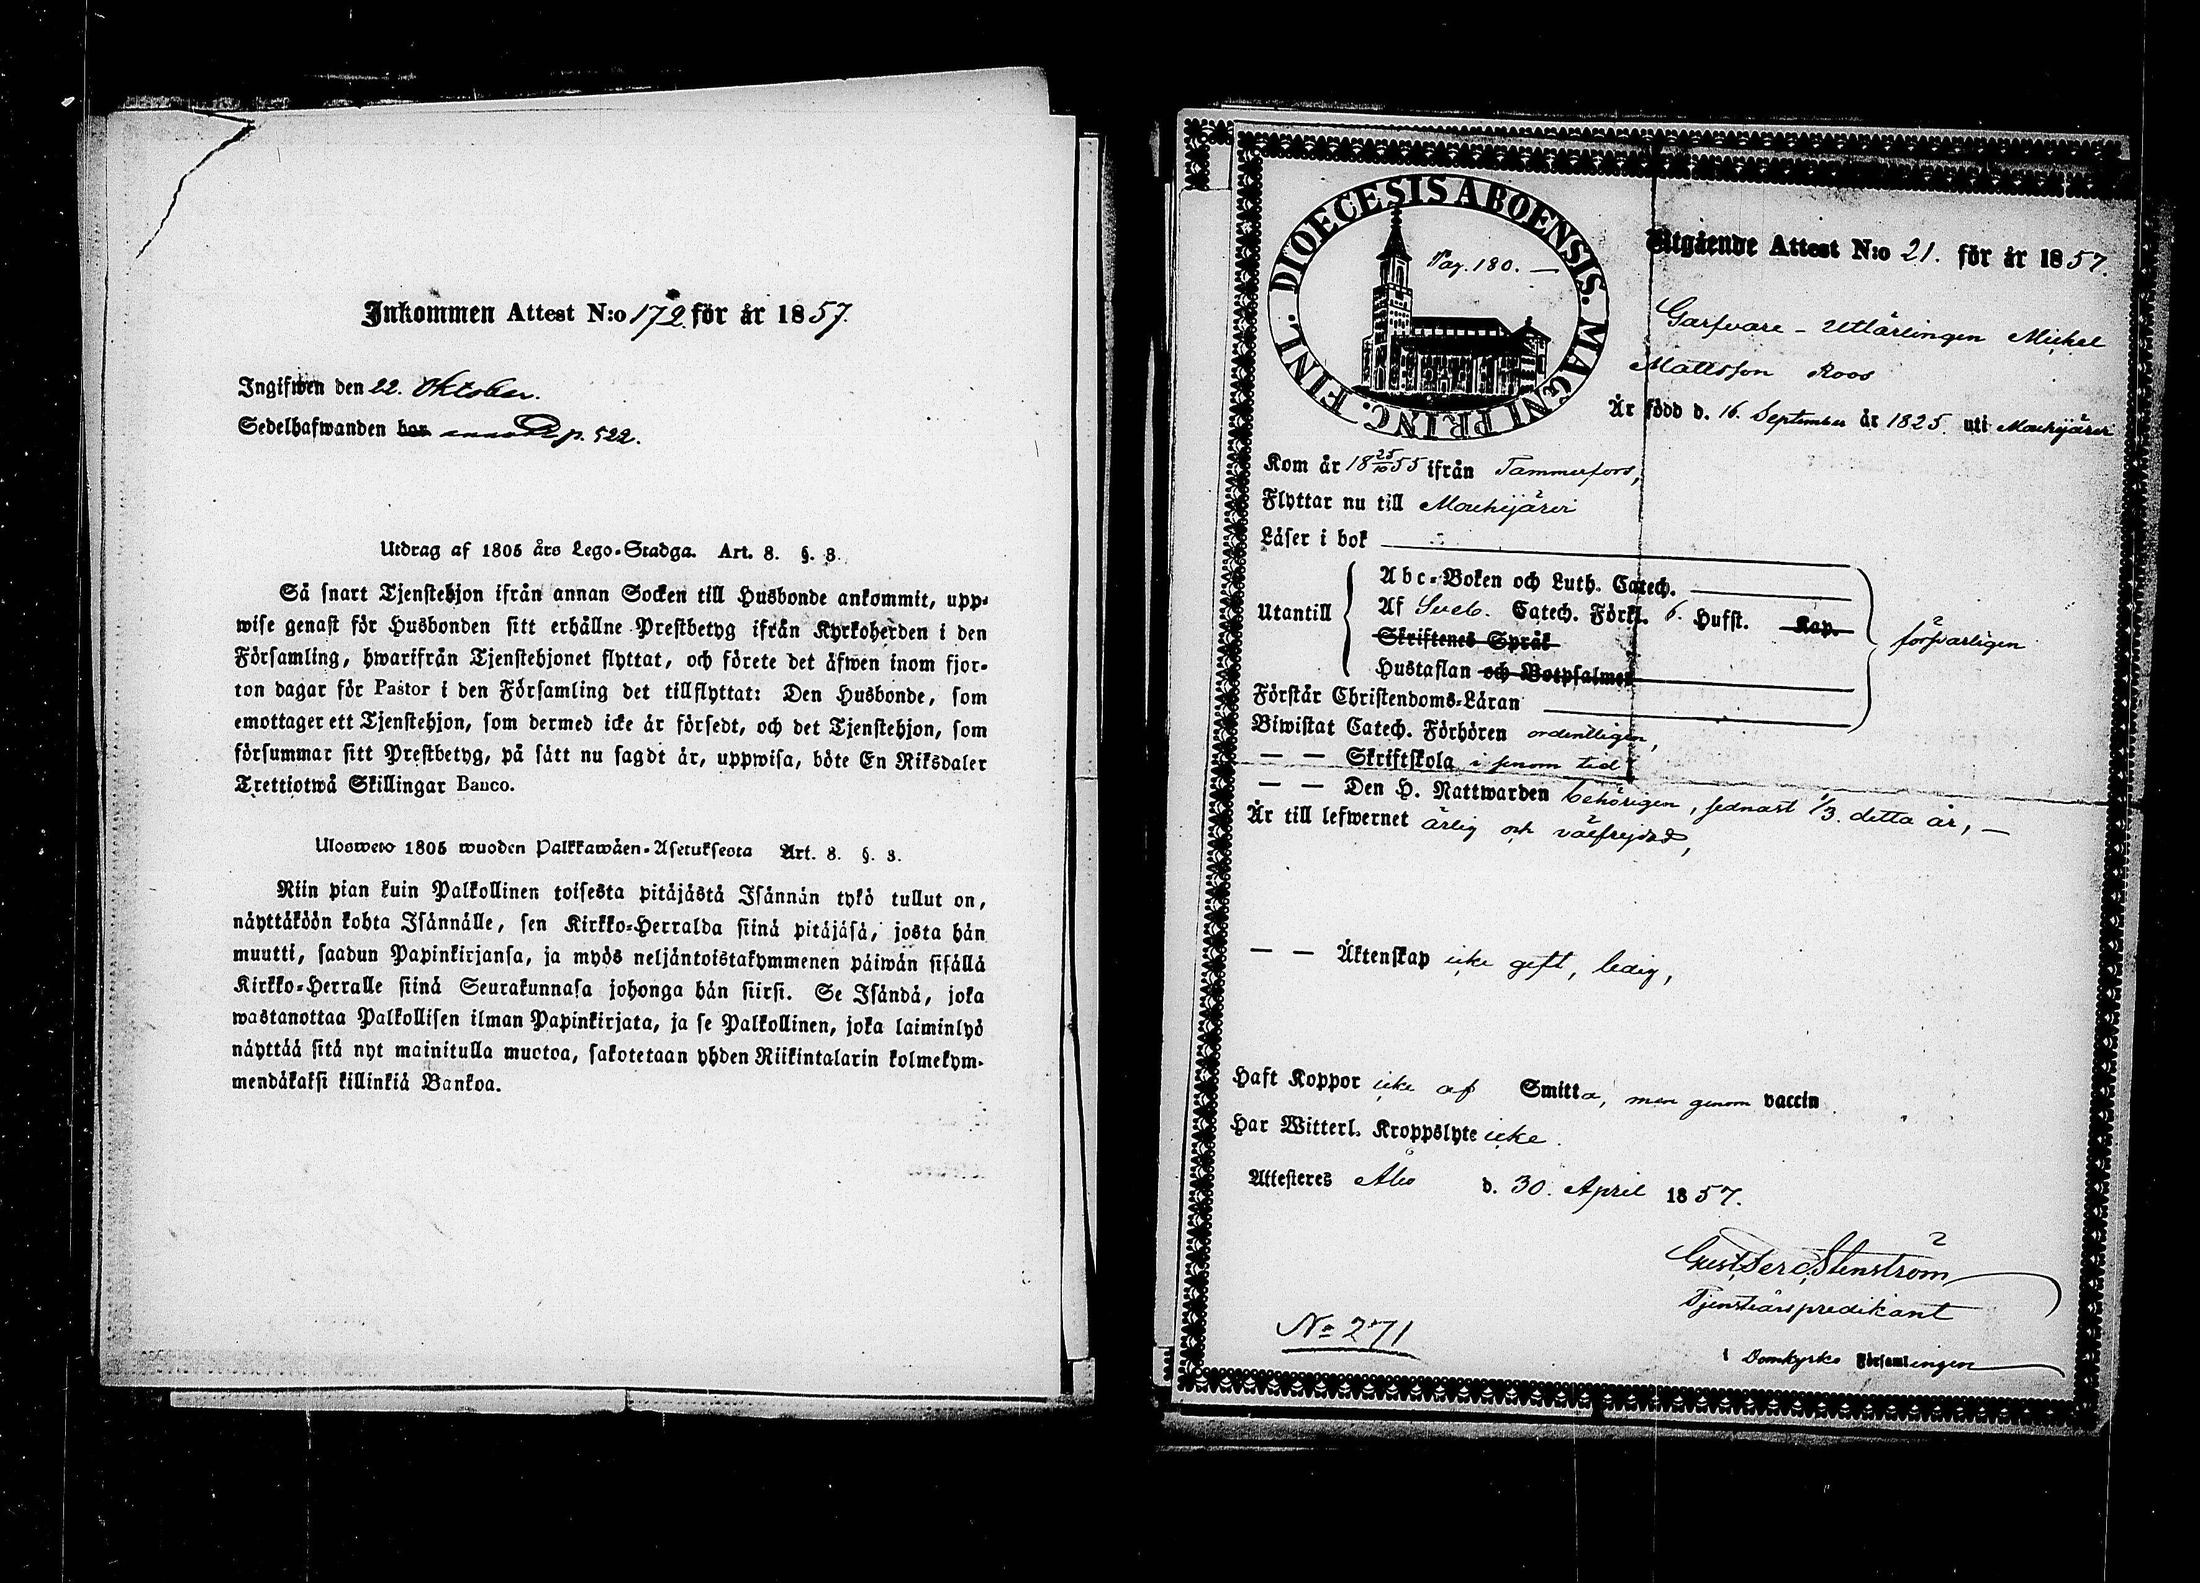 Inkommen Attest N:o 172. för år 1857.
Ingifwen den 22. Oktober.
Sedelhafwanden bor p. 522.
Utdrag af 1805 års Lego-Stadga. Art. 8. §. 3.
Så snart Tjenstehjon ifrån annan Socken till Husbonde ankommit, upp-
wise genast för Husbonden sitt erhållne Prestbetyg ifrån Kyrkoherden i den
Församling, hwarifrån Tjenstehjonet flyttat, och förete det äfwen inom fjor-
ton dagar för Pastor i den Församling det tillflyttat: Den Husbonde, som
emottager ett Tjenstehjon, som dermed icke är försedt, och det Tjenstehjon, som
försummar sitt Prestbetyg, på sätt nu sagdt är, uppwisa, böte En Riksdaler
Trettiotwå Skillingar Banco.
Ulosweto 1805 wuoden Palkkawäen-Asetuksesta Art. 8. §. 3.
Niin pian kuin Palkollinen toisesta pitäjästä Isännän tykö tullut on,
näyttäköön kohta Isännälle, sen Kirkko-Herralda siinä pitäjäsä, josta hän
muutti, saadun Papinkirjansa, ja myös neljäntoistakymmenen päiwän sisällä
Kirkko-Herralle siinä Seurakunnasa johonga hän siirsi. Se Isändä, joka
wastanottaa Palkollisen ilman Papinkirjata, ja se Palkollinen, joka laiminlyö
näyttää sitä nyt mainitulla muotoa, sakotetaan yhden Riikintalarin kolmekym-
mendäkaksi killinkiä Bankoa.
DIOECESIS ABOENSIS. MAGNI PRINC. FINL.
Pag. 180. —
Utgående Attest N:o 21. för år 1857.
Garfvare-Utlärlingen Michel
Mattsson Roos
Är född d. 16. September år 1825. uti Mouhijärvi
Kom år 18 25/10 55 ifrån Tammerfors,
Flyttar nu till Mouhijärvi
Läser i bok
Utantill
Abc-Boken och Luth. Catech.
Af Sveb. Catech. Förkl. 6. Hufst. Kap.
Skriftenes Språk
Hustaflan och Botpsalmer
försvarligen
Förstår Christendoms-Läran
Biwistat Catech. Förhören ordentligen,
— — Skriftskola i sinom tid
— — Den H. Nattwarden behörigen, sednast 1/3. detta år, —
Är till lefwernet ärlig och välfrejdad,
— — Äktenskap icke gift, ledig,
Haft Koppor icke af Smitta, men genom vaccin
Har Witterl. Kroppslyte icke.
Attesteres Åbo d. 30. April 1857.
Gust. Ferd. Stenström
Tjenstårspredikant
i Domkyrko Församlingen
No 271